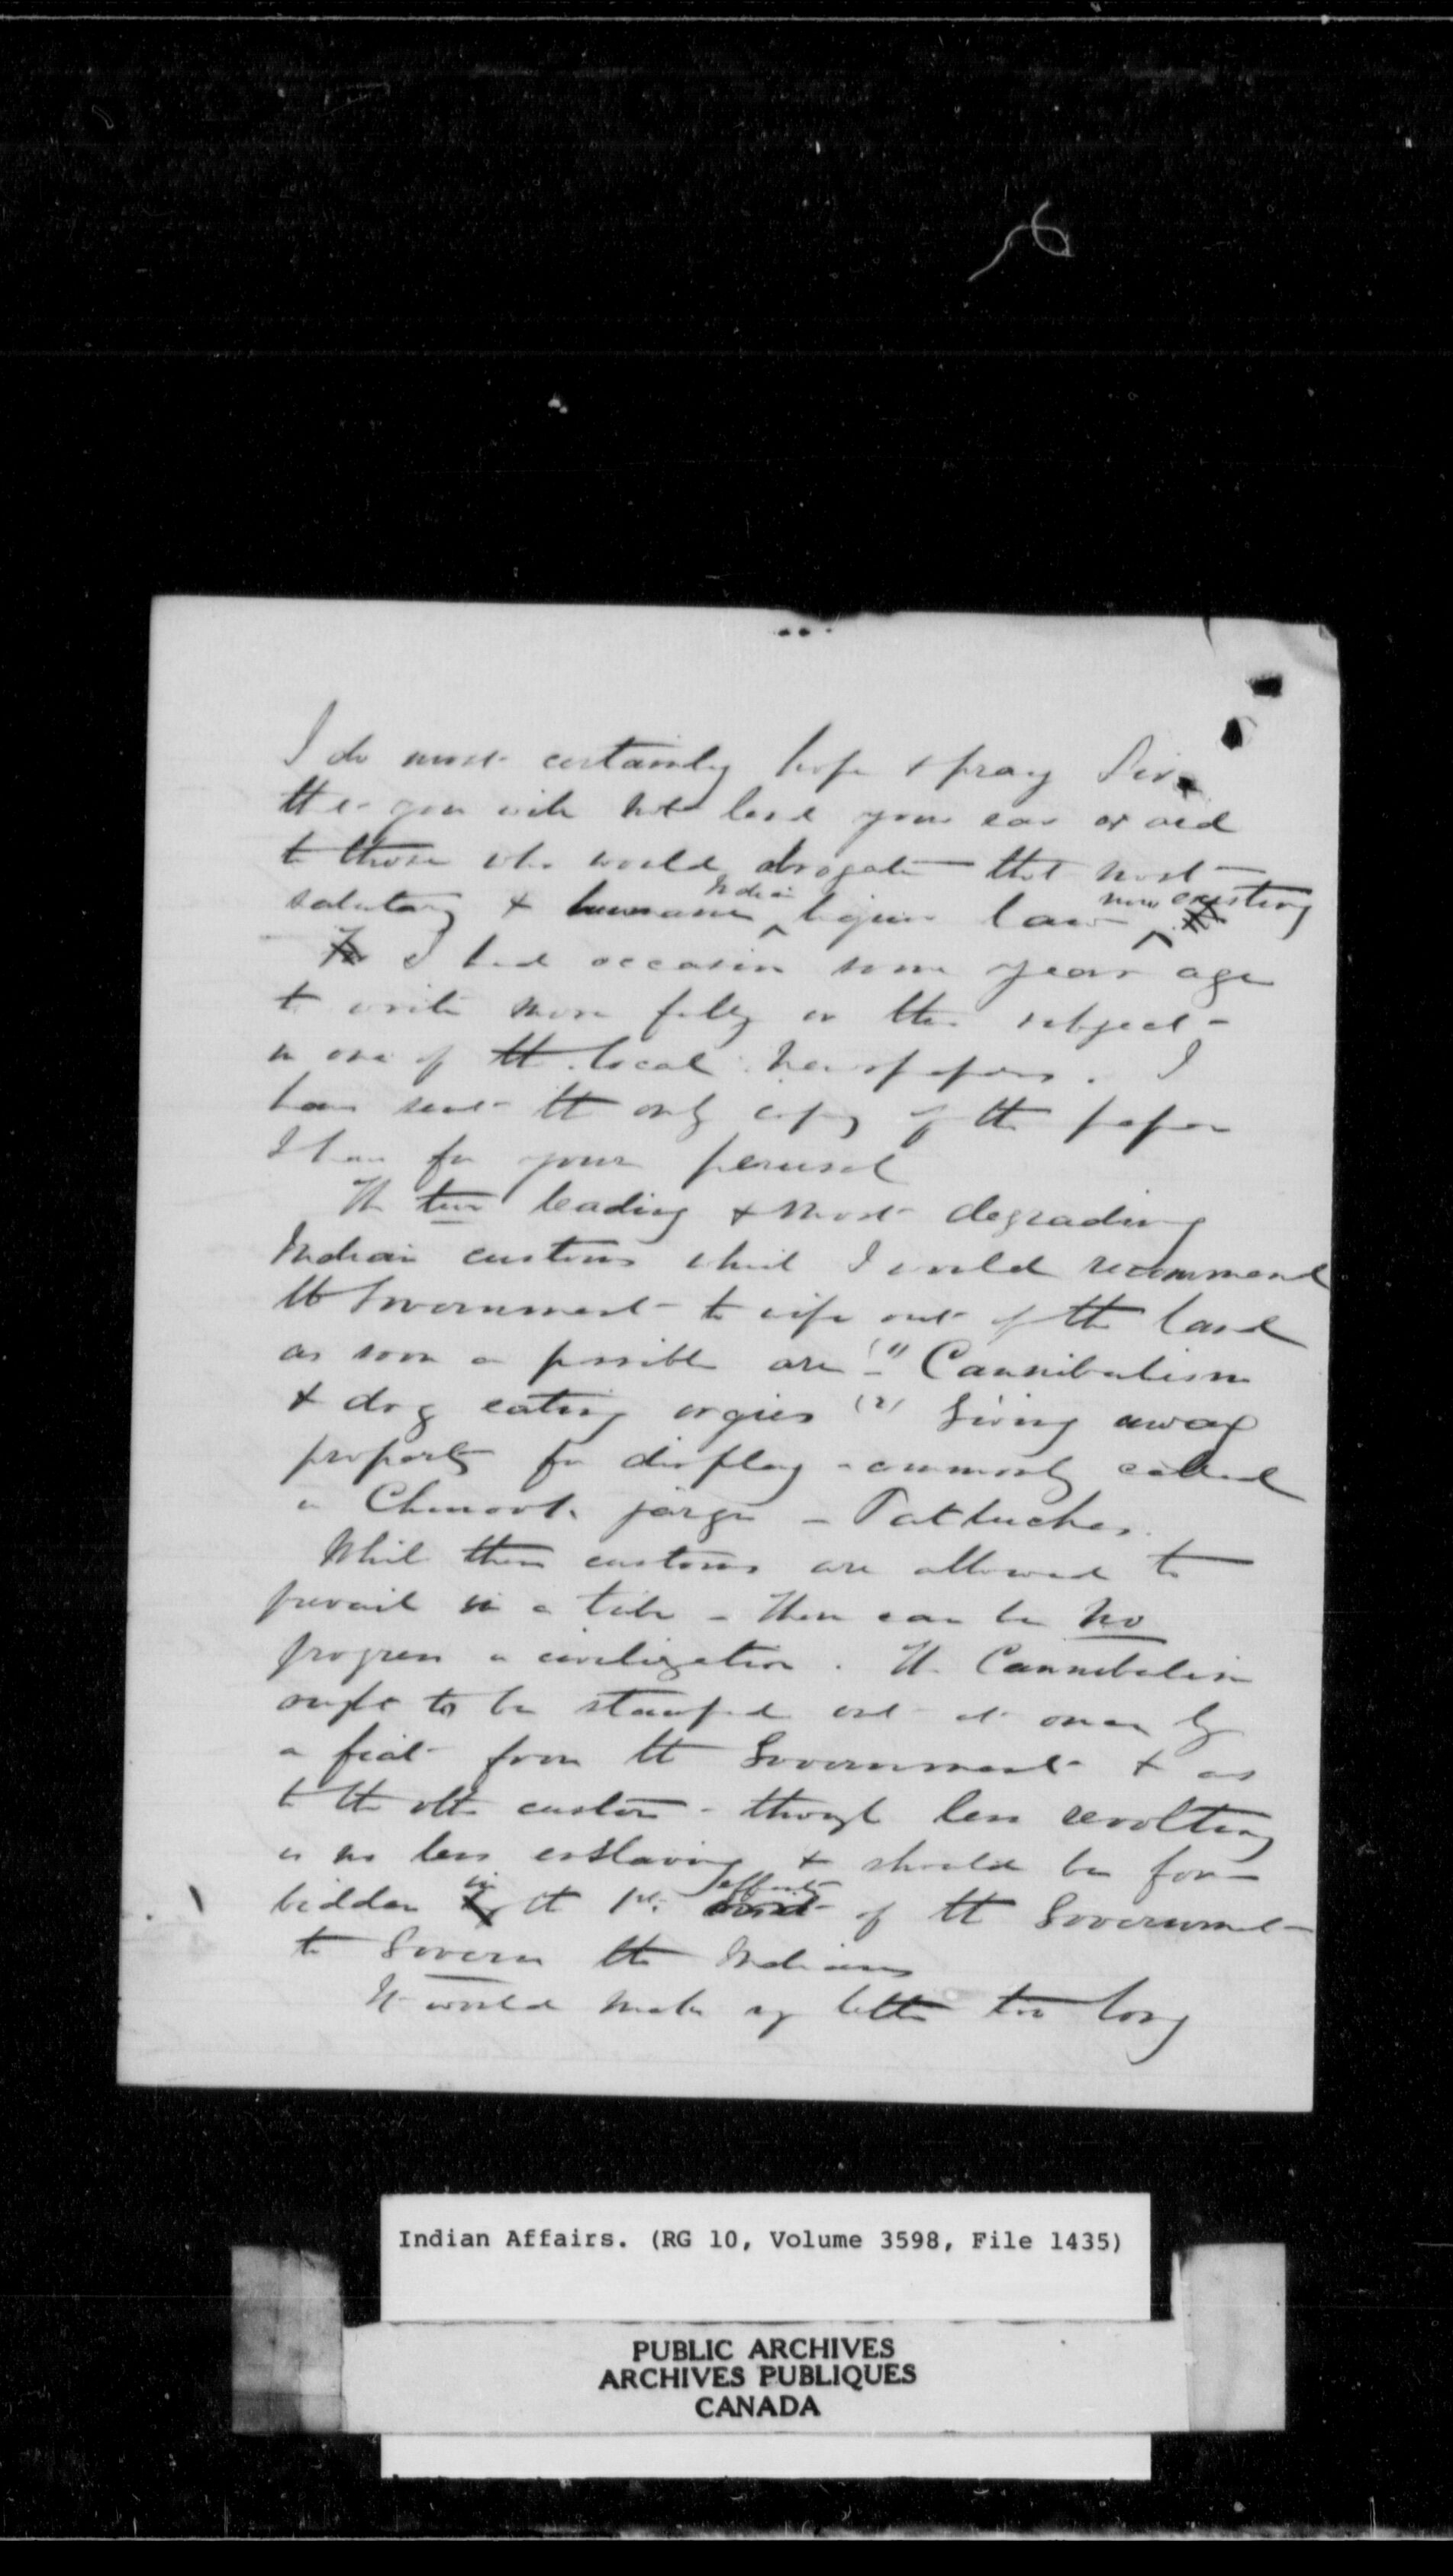 I do most certainly hope & pray Sir
that you will not lend your ear or aid
to those who would abrogate that most
salutary & humane Indian liquor law now existing
I had occasion some years ago
to write more fully on this subject -
in one of the local newspapers. I
have sent the only copy of the paper
I have for your perusal
The two leading & most degrading
Indian customs which I would recommend
the Government to wipe out of the land
as soon as possible are - (1) Cannibalism
& dog eating orgies (2) Giving away
property for display - commonly called
in Chinook jargon - Patlaches.
While these customs are allowed to
prevail in a tribe - there can be no
progress in civilization. The Cannibalism
ought to be stamped out at once by
a fiat from the Government & as
to the other custom - though less revolting
is no less enslaving & should be for-
bidden in the 1st. effort of the Government
to Govern the Indians
It would make my letter too long
Indian Affairs. (RG 10, Volume 3598, File 1435)
PUBLIC ARCHIVES
ARCHIVES PUBLIQUES
CANADA